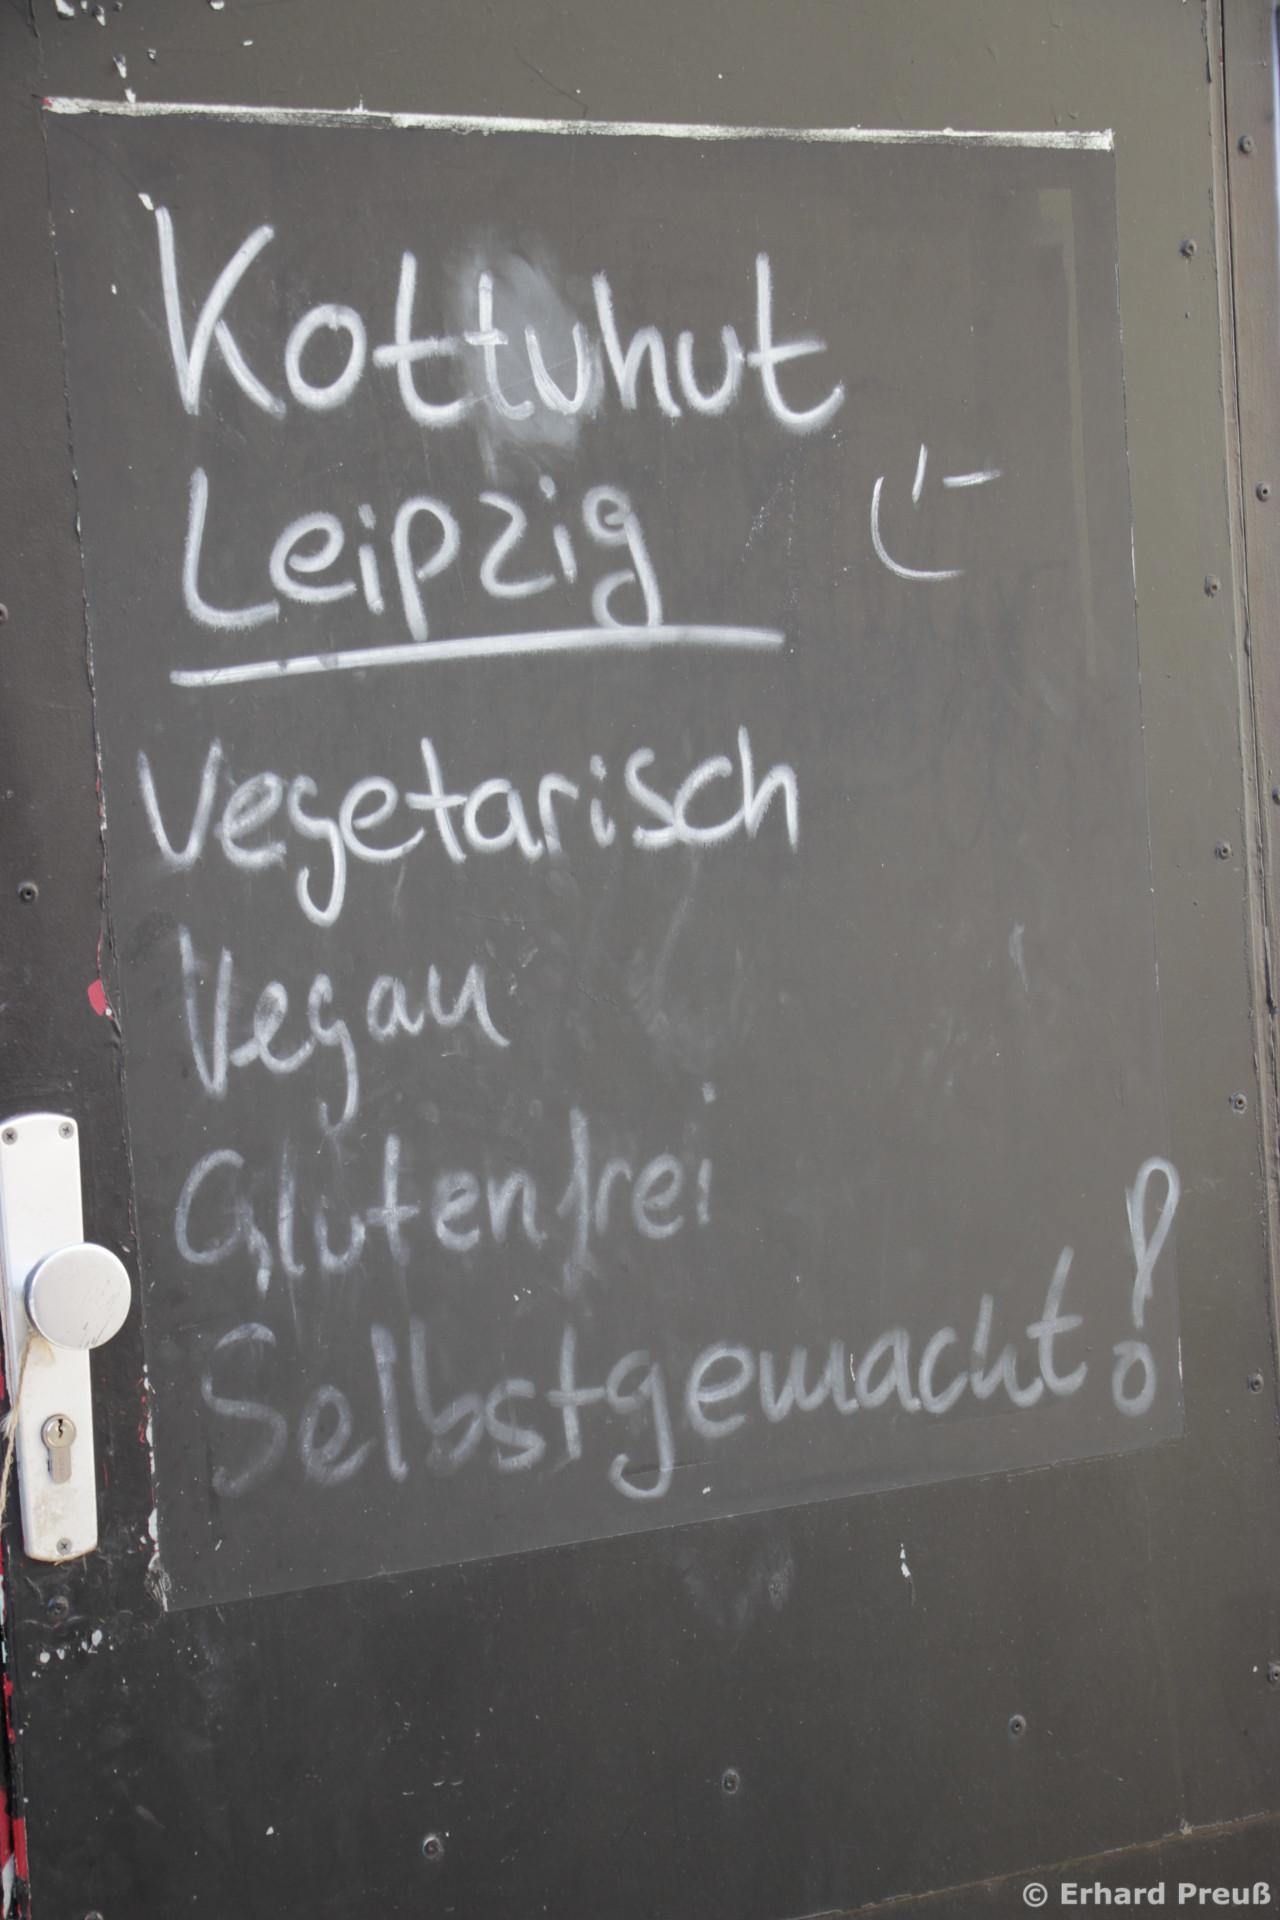 Kottuhut
Leipzig
Vegetarisch
Vegan
Glutenfrei
Selbstgemacht!
© Erhard Preuß